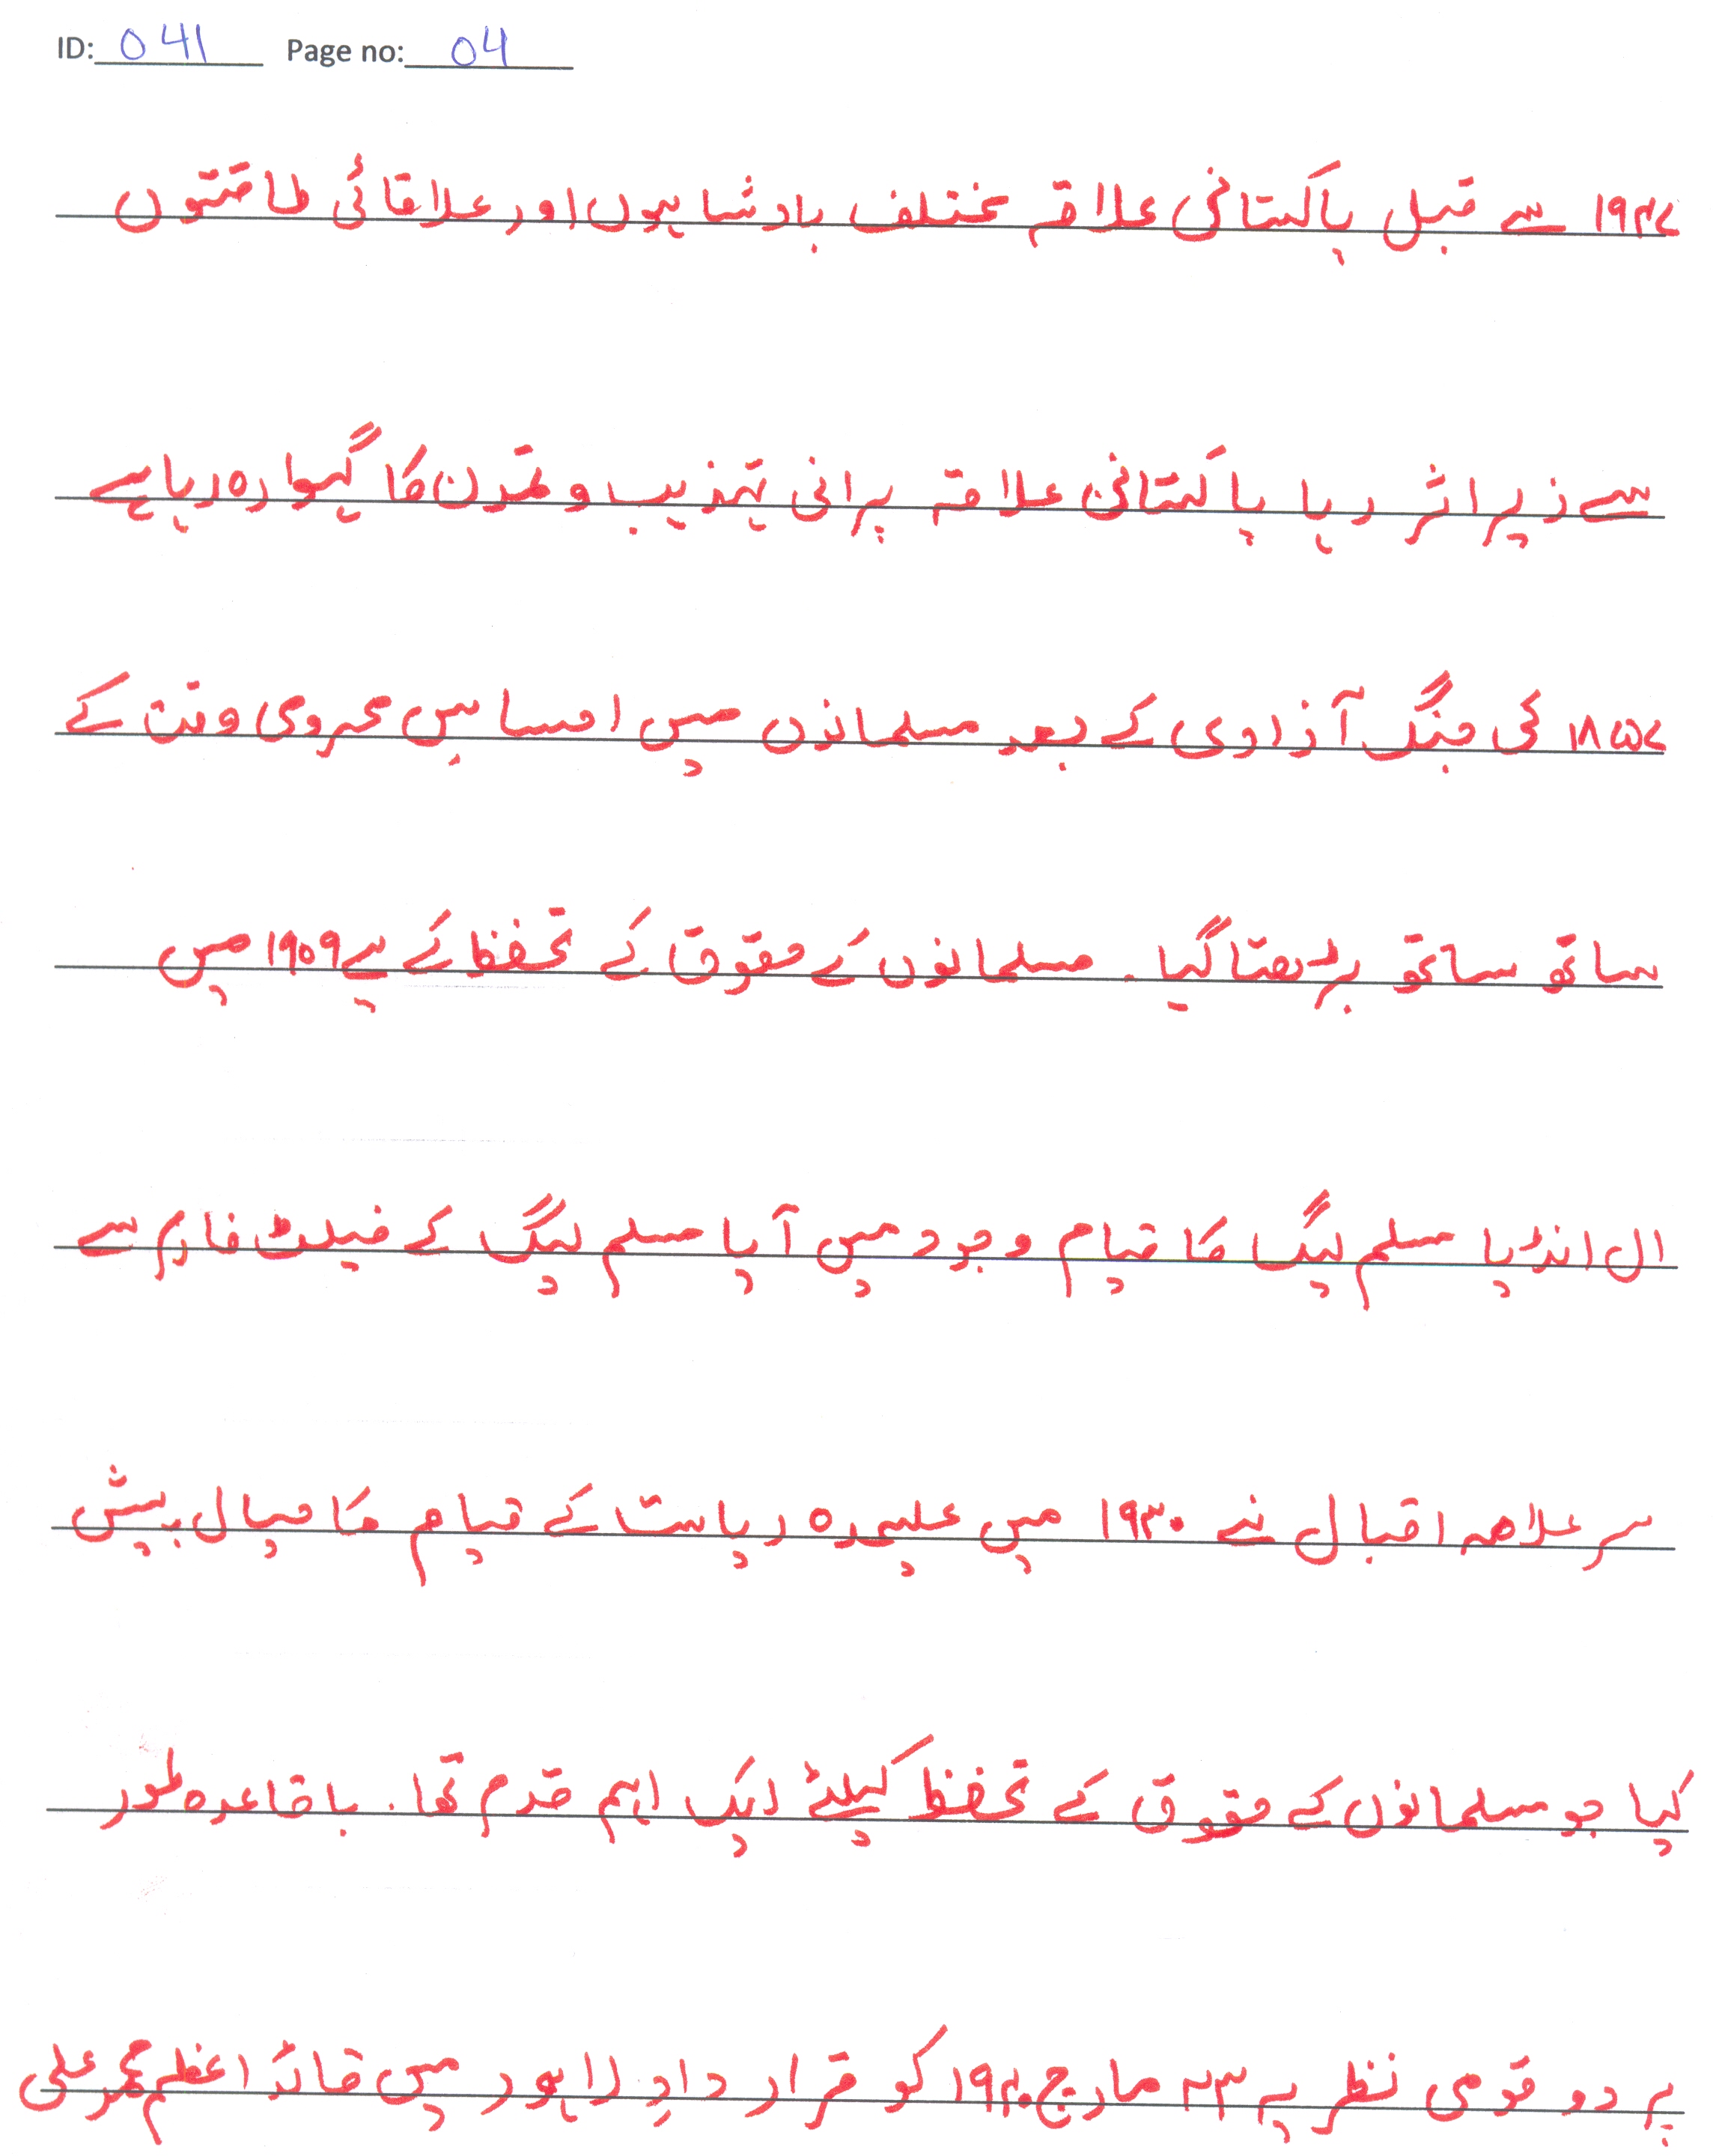 ID: 041 Page no: 04
۱۹۴۷ سے قبل پاکستانی علاقے مختلف بادشاہوں اور علاقائی طاقتوں
سے زیر اثر رہا پاکستانی علاقہ پرانی تہذیب و تمدن کا گہوارہ رہا ہے
۱۸۵۷ کی جنگ آزادی کے بعد مسلمانوں میں احساسِ محرومی وقت کے
ساتھ ساتھ بڑھتا گیا۔ مسلمانوں کے حقوق کے تحفظ کے لیے ۱۹۰۹ میں
ال انڈیا مسلم لیگ کا قیام وجود میں آیا مسلم لیگ کے فیلٹ فارم سے
سر علامہ اقبال نے ۱۹۳۰ میں علیحدہ ریاست کے قیام کا خیال پیش
کیا جو مسلمانوں کے حقوق کے تحفظ کیلئے ایک اہم قدم تھا۔ باقاعدہ طور
پر دو قومی نظریہ ۲۳ مارچ ۱۹۴۰ کو قرار دادِ لاہور میں قائد اعظم محمد علی